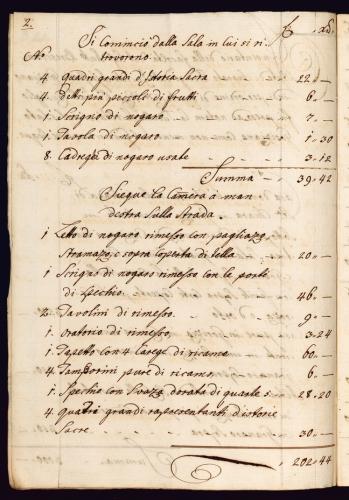 2. fl xd.
Si Cominciò dalla Sala in cui si ri-
N.o trovorono.
4 Quadri grandi d'Istoria Sacra 22 „ —
4 detti più piccoli di frutti 6 „ —
1 Scrigno di nogaro 7 „ —
1 Tavola di nogaro 1 „ 30
8 Cadreghe di nogaro usate 3 „ 12
Summa 39 „ 42
Siegue la Camera a man
destra sulla Strada.
1 Letto di nogaro rimesso con pagliazzo,
Stramazzo, e sopra coperta di tella 20 „ —
1 Scrigno di nogaro rimesso con le porte
di Spechio 46 „ —
2 Tavolini di rimesso 9 „ —
1 Oratorio di rimesso 3 „ 24
1 Tapetto con 4 Careghe di ricamo 60 „ —
4 Tamborini pure di ricamo 6 „ —
1 Spechio con Soaza dorata di quarte 5 28 „ 20
4 Quadri grandi rapresentanti d'istorie
Sacre 30 „ —
202 „ 44